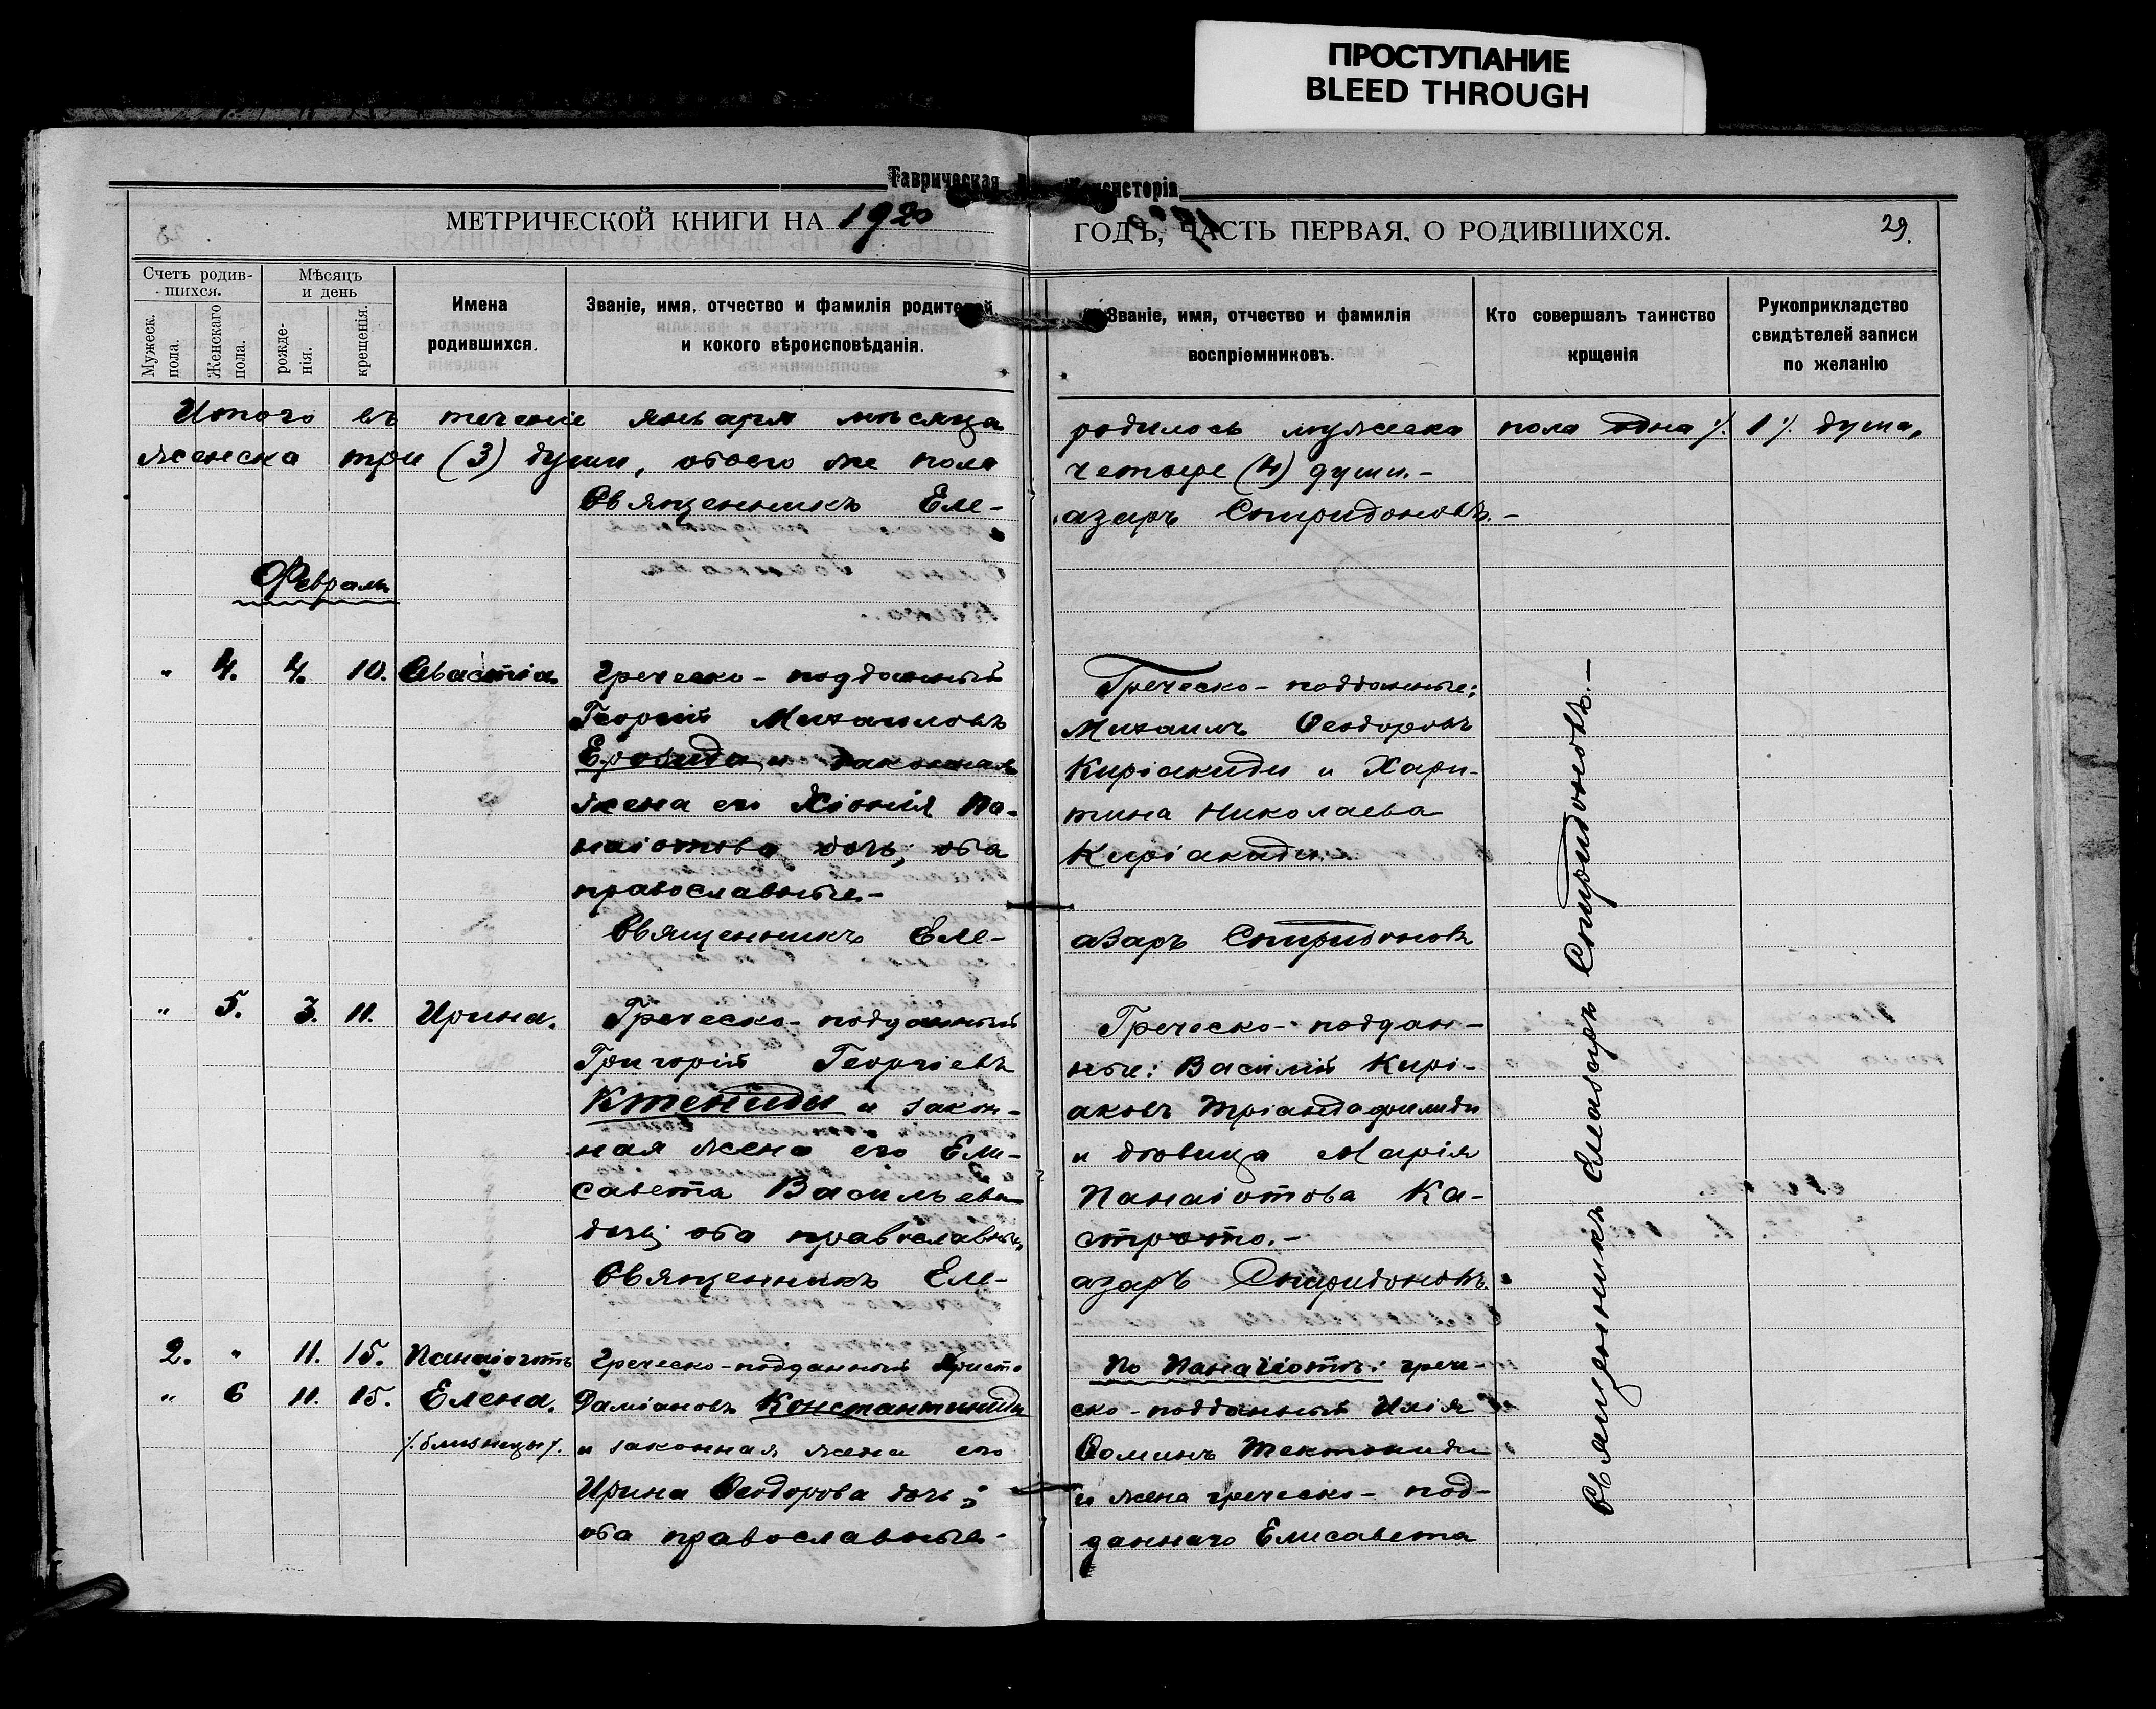 ПРОСТУПАНИЕ
BLEED THROUGH
Таврическая Консисторія
МЕТРИЧЕСКОЙ КНИГИ НА 1920
ГОДЪ, ЧАСТЬ ПЕРВАЯ, О РОДИВШИХСЯ.
29.
Счетъ родив-
шихся.
Мужеск.
пола.
Женскаго
пола.
Мѣсяцъ
и день
рожде-
нія.
крещенія.
Имена
родившихся.
Званіе, имя, отчество и фамилія родителей
и кокого вѣроисповѣданія.
Званіе, имя, отчество и фамилія
воспріемниковъ.
Кто совершалъ таинство
крщенія
Рукоприкладство
свидѣтелей записи
по желанію
Итого въ теченіе января мѣсяца
родилось мужеска пола одна ./. 1 ./. душа,
женска три (3) души, обоего же пола
четыре (4) души.-
Священникъ Еле-
азаръ Спиридоновъ.-
Февраль
" 4. 4. 10. Севастіа
Греческо-подданный
Георгій Михаиловъ
и законная
жена его Хіонія Па-
наіотова дочь; оба
православные.-
Священникъ Еле-
Греческо-подданные:
Михаилъ Ѳеодоровъ
Киріакиди и Хари-
тина Николаева
Киріакиди.-
азаръ Спиридоновъ
" 5. 3. 11. Ирина.
Греческо-подданный
Григорій Георгіевъ
Ктениди и закон-
ная жена его Ели-
савета Васильева
дочь; оба православные,
Священникъ Еле-
Греческо-поддан-
ные: Василій Кирі-
аковъ Тріандафилиди
и дѣвица Марія
Панаіотова Ка-
азаръ Спиридоновъ.
2. " 11. 15. Панаіотъ
" 6 11. 15. Елена.
./.близнецы./.
Греческо-подданный Христо
Даміановъ Константиниди
и законная жена его
Ирина Ѳеодорова дочь;
оба православные.-
По Панаіотѣ: грече-
ско-подданный Илія
Ѳоминъ Тектониди
и жена греческо-под-
даннаго Елисавета
Священникъ Елеазаръ Спиридоновъ.-